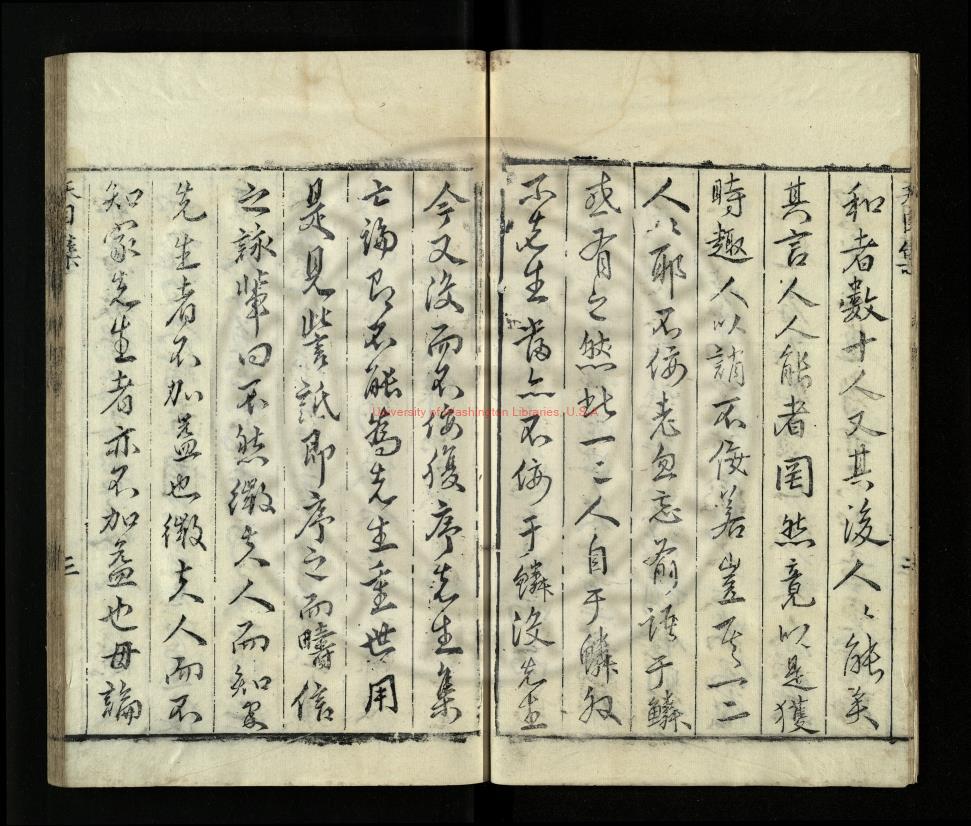 和者數十人又其後人〻能美
其言人人能者罔然竟以是獲
時趣人以誚不佞若豈一二
人以耶不佞老忽忘前語于鱗
或有之然此一二人自于鱗
不先生當亦不佞于鱗沒先生
今又沒而不佞復序先生集
亡論即不能為先生重世用
是見訾詆即序之而疇信
之諒輩曰不然微夫人而知家
先生者不加益也微夫人而不
知家先生者亦不加益也毋論
天目集
二
天目集
三
University of Washington Libraries, U.S.A